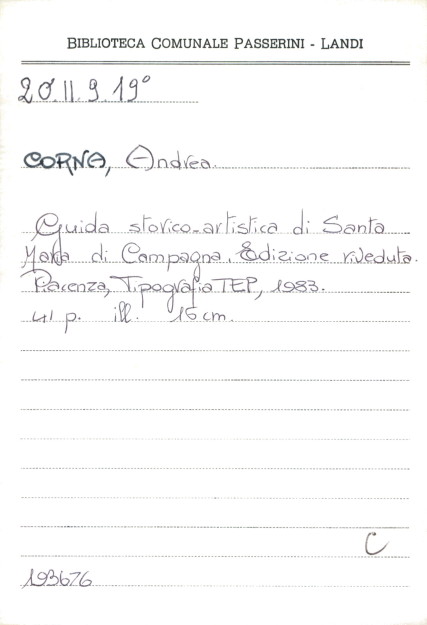 BIBLIOTECA COMUNALE PASSERINI - LANDI
20.II.9.19°
CORNA, Andrea.
Guida storico-artistica di Santa
Maria di Campagna. Edizione riveduta.
Piacenza, Tipografia TEP, 1983.
41 p. ill. 16 cm.
C
193676